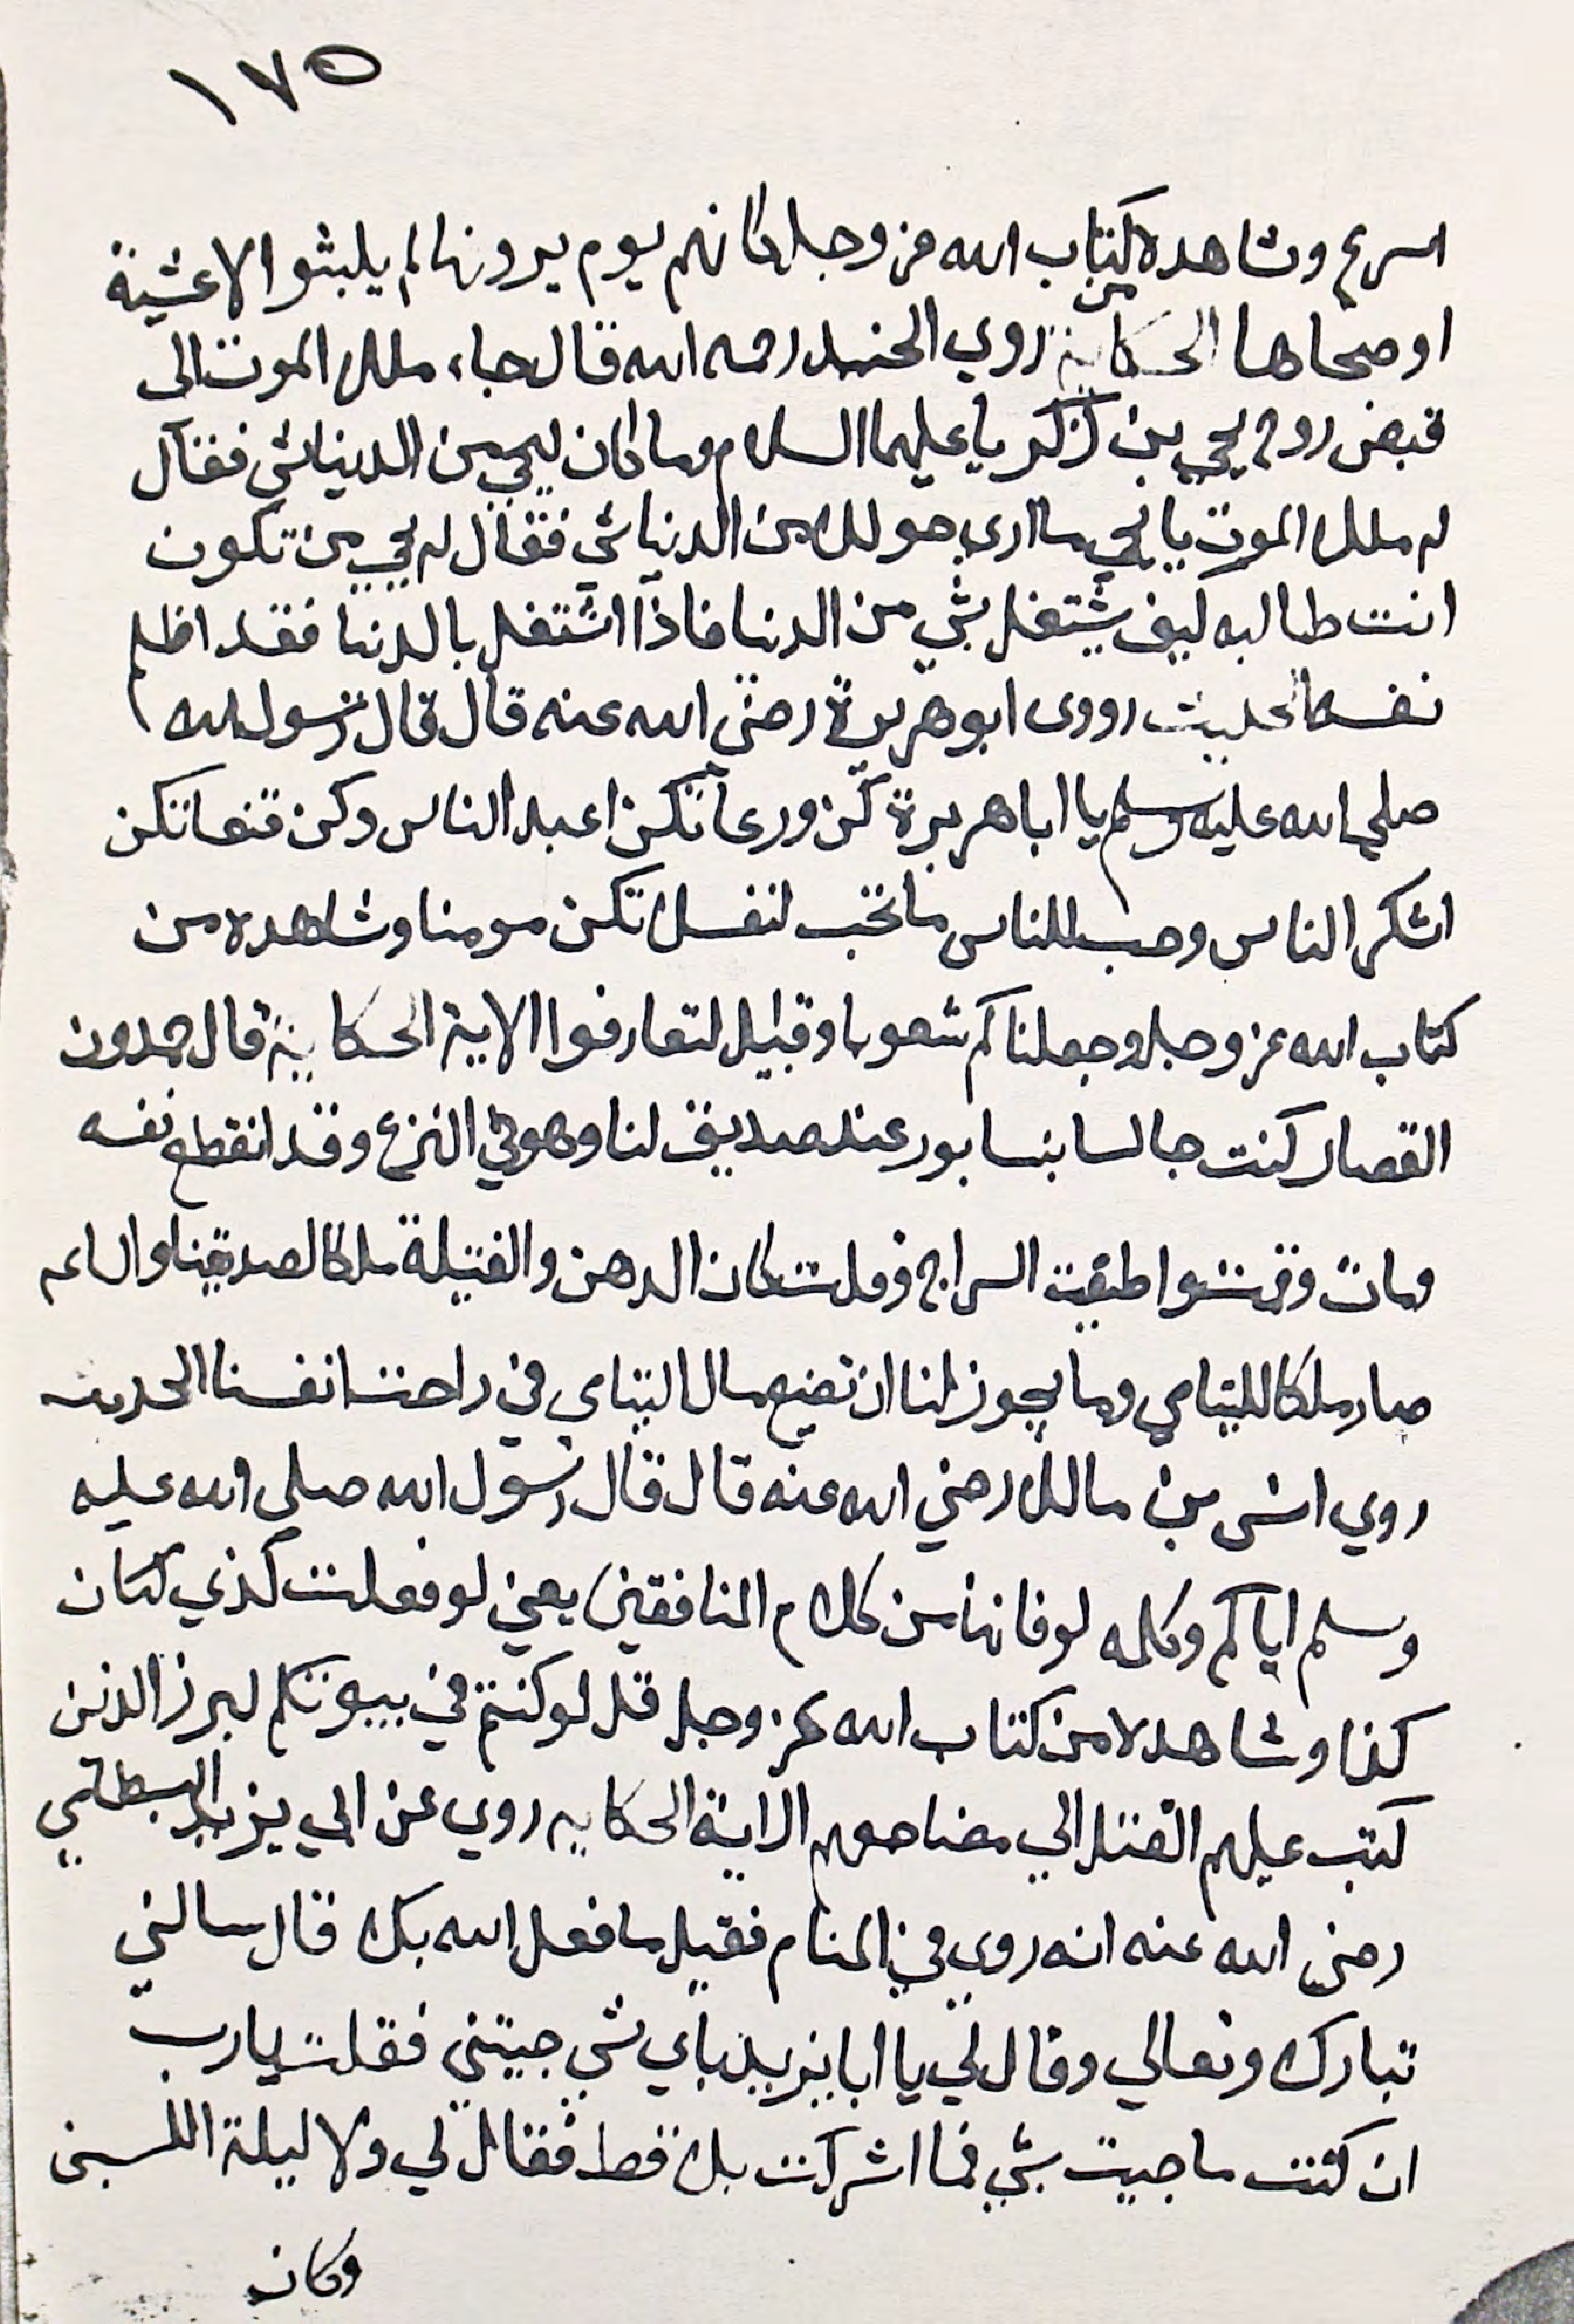 ١٧٥
اسرع وشاهده من كتاب الله عز وجل كانهم يوم يرونها لم يلبثوا الا عشية
او ضحاها الحكاية روي الجنيد رحمه الله قال جاء ملك الموت الى
قبض روح يحيى بن زكريا عليهما السلام وما كان ليحيى من الدنيا شي فقال
له ملك الموت يا يحيى ما ارى حولك من الدنيا شي فقال له يحيى من تكون
انت طالبه كيف يشتغل بشي من الدنيا فاذا اشتغل بالدنيا فقد اظلم
نفسه الحديث وروى ابو هريرة رضي الله عنه قال قال رسول الله
صلى الله عليه وسلم يا ابا هريرة كن ورعا تكن اعبد الناس وكن قنعا تكن
اشكر الناس وحب للناس ما تحب لنفسك تكن مومنا وشاهده من
كتاب الله عز وجل وجعلناكم شعوبا وقبايل لتعارفوا الاية الحكاية قال حمدون
القصار كنت جالسا بنسابور عند صديق لنا وهو في النزع وقد انقطع نفسه
ومات وقمت واطفيت السراج وقلت كان الدهن والفتيلة ملكا لصديقنا والساعه
صار ملكا لليتامي وما يجوز لنا ان نضيع مال اليتامي في راحت انفسنا الحديث
روي انس بن مالك رضي الله عنه قال قال رسول الله صلى الله عليه
وسلم اياكم وكلمه لو فانها من كلام المنافقين يعني لو فعلت كذي لكان
كذا وشاهده من كتاب الله عز وجل قل لو كنتم في بيوتكم لبرز الذين
كتب عليهم القتل الي مضاجعهم الاية الحكايه روي عن ابي يزيد البسطامي
رضي الله عنه انه روي في المنام فقيل ما فعل الله بك قال سالني
تبارك وتعالي وقال لي يا ابا يزيد باي شي جيتني فقلت يارب
ان كنت ما جيت بشي فما اشركت بك قط فقال لي ولا ليلة اللبن
وكان